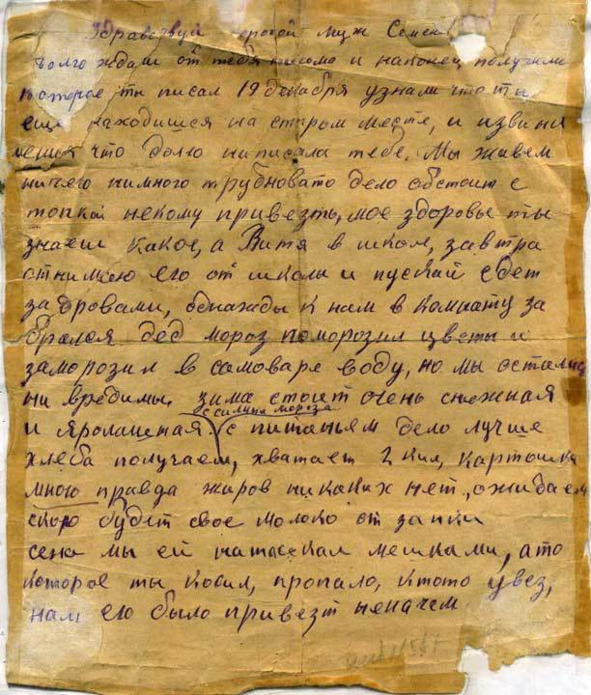 Здравствуй дорогой муж Семен
долго ждали от тебя письмо и наконец получили
которое ты писал 19 декабря узнали что ты
еще находишся на старом месте, и извини
меня что долго ниписала тебе. Мы живем
ничего нимного трудновато дело обстоит с
топкой некому привезть, мое здоровье ты
знаеш какое, а Витя в школе, завтра
отнимаю его от школы и пускай едет
за дровами, однажды к нам в комнату за
брался дед мороз поморозил цветы и
заморозил в самоваре воду, но мы остались
ни вредимы. зима стоит очень снежная
и
с питаньем дело лучше
хлеба получаем, хватает 2 кил, картошки
много правда жиров никаких нет, ожидаем
скоро будет свое молоко от
сена мы ей натаскали мешками, а то
которое ты косил, пропало, ктото увез,
нам его было привезт неначем